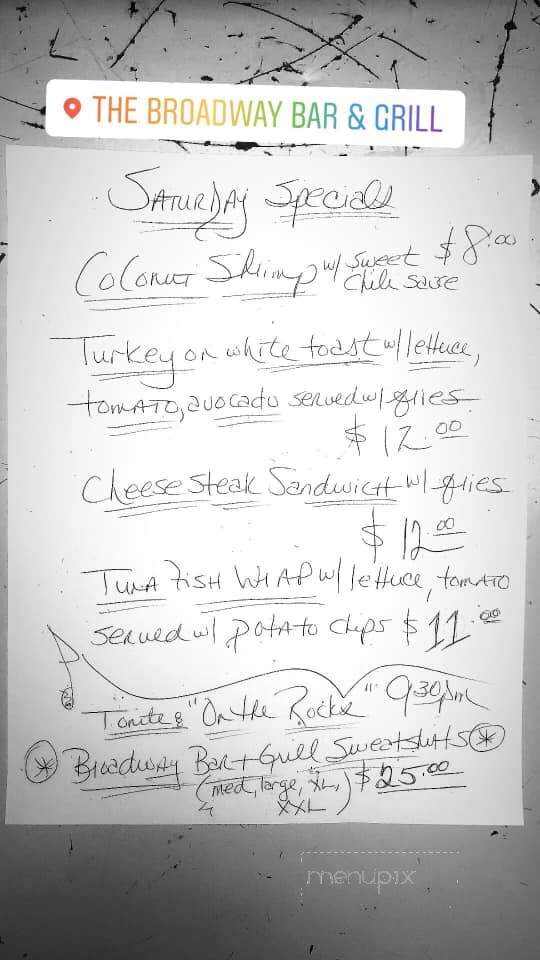 THE BROADWAY BAR & GRILL
SATURDAY Specials
Coconut Shrimp w/ Sweet $8.00
Chili Sause
Turkey on white toast w/ lettuce,
tomATO, avocado served w/ fries
$12.00
Cheese Steak Sandwich w/ fries
$12.00
TUNA FISH WRAP w/ lettuce, tomATO
served w/ potAto chips $11.00
Tonite: "On the Rocks" 930pm
* Broadway Bar + Grill Sweatshirts *
(med, large, XL, $25.00
XXL)
menupix